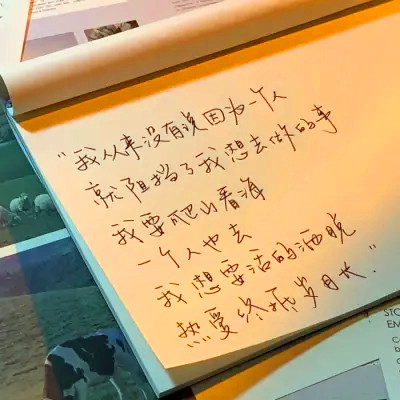 “我从来没有说因为一个人
就阻挡了我想去做的事
我要爬山看海
一个人也去
我想要活的洒脱
热爱终抵岁月长”
STO
EM